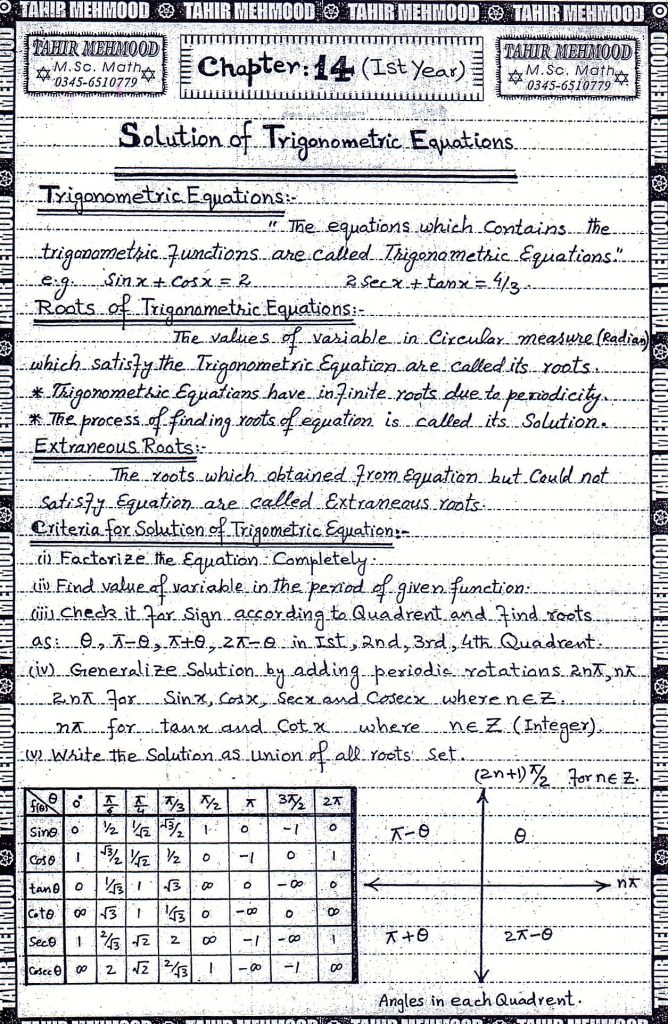 TAHIR MEHMOOD TAHIR MEHMOOD TAHIR MEHMOOD TAHIR MEHMOOD
TAHIR MEHMOOD
M.Sc. Math
0345-6510779
Chapter: 14 (Ist Year)
TAHIR MEHMOOD
M.Sc. Math
0345-6510779
Solution of Trigonometric Equations
Trigonometric Equations:-
" The equations which Contains the
trigonometric functions are called Trigonometric Equations."
e.g. Sin x + Cos x = 2 2 Sec x + tan x = 4/3
Roots of Trigonometric Equations:-
The values of variable in Circular measure (Radian)
which satisfy the Trigonometric Equation are called its roots.
* Trigonometric Equations have infinite roots due to periodicity.
* The process of finding roots of equation is called its Solution.
Extraneous Roots:-
The roots which obtained from Equation but Could not
Satisfy Equation are called Extraneous roots.
Criteria for Solution of Trigometric Equation:-
(i) Factorize the Equation Completely.
(ii) Find value of variable in the period of given function.
(iii) Check it for Sign according to Quadrent and find roots
as: θ, π-θ, π+θ, 2π-θ in Ist, 2nd, 3rd, 4th Quadrent.
(iv) Generalize Solution by adding periodic rotations 2nπ, nπ
2nπ for Sinx, Cosx, Secx and Cosecx where n∈Z.
nπ for tanx and Cot x where n∈Z (Integer).
(v) Write the Solution as union of all roots set.
(2n+1)π/2 for n∈Z.
f(θ) θ 0° π/6 π/4 π/3 π/2 π 3π/2 2π
Sinθ 0 1/2 1/√2 √3/2 1 0 -1 0
Cosθ 1 √3/2 1/√2 1/2 0 -1 0 1
tanθ 0 1/√3 1 √3 ∞ 0 -∞ 0
Cotθ ∞ √3 1 1/√3 0 -∞ 0 ∞
Secθ 1 2/√3 √2 2 ∞ -1 -∞ 1
Cosecθ ∞ 2 √2 2/√3 1 -∞ -1 ∞
π-θ θ
nπ
π+θ 2π-θ
Angles in each Quadrent.